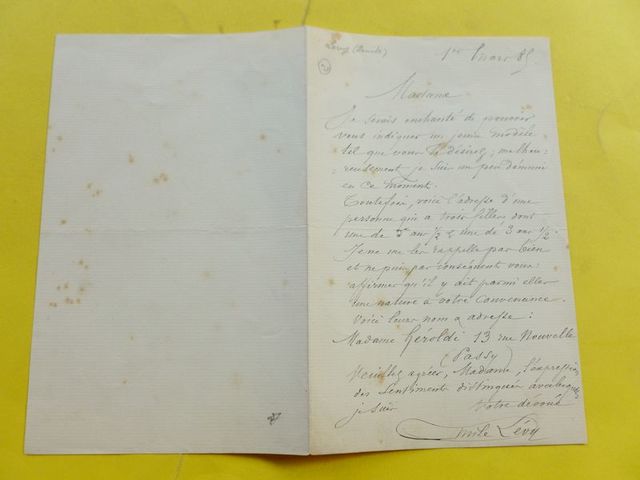 Levy (Emile)
1er Mars 85
Madame
Je serais enchanté de pouvoir
vous indiquer un jeune modèle
tel que vous le désirez; malheu-
-reusement je suis un peu démuni
en ce moment.
Toutefois, voici l'adresse d'une
personne qui a trois filles dont
une de 5 ans 1/2 & une de 3 ans 1/2.
Je ne me les rappelle pas bien
et ne puis par conséquent vous
affirmer qu'il y ait parmi elles
une nature à votre convenance.
Voici leur nom & adresse:
Madame Géroldi 13 rue Nouvelle
(Passy)
Veuillez agréer, Madame, l'expression
des sentiments distingués avec lesquels
je suis votre dévoué
Emile Lévy